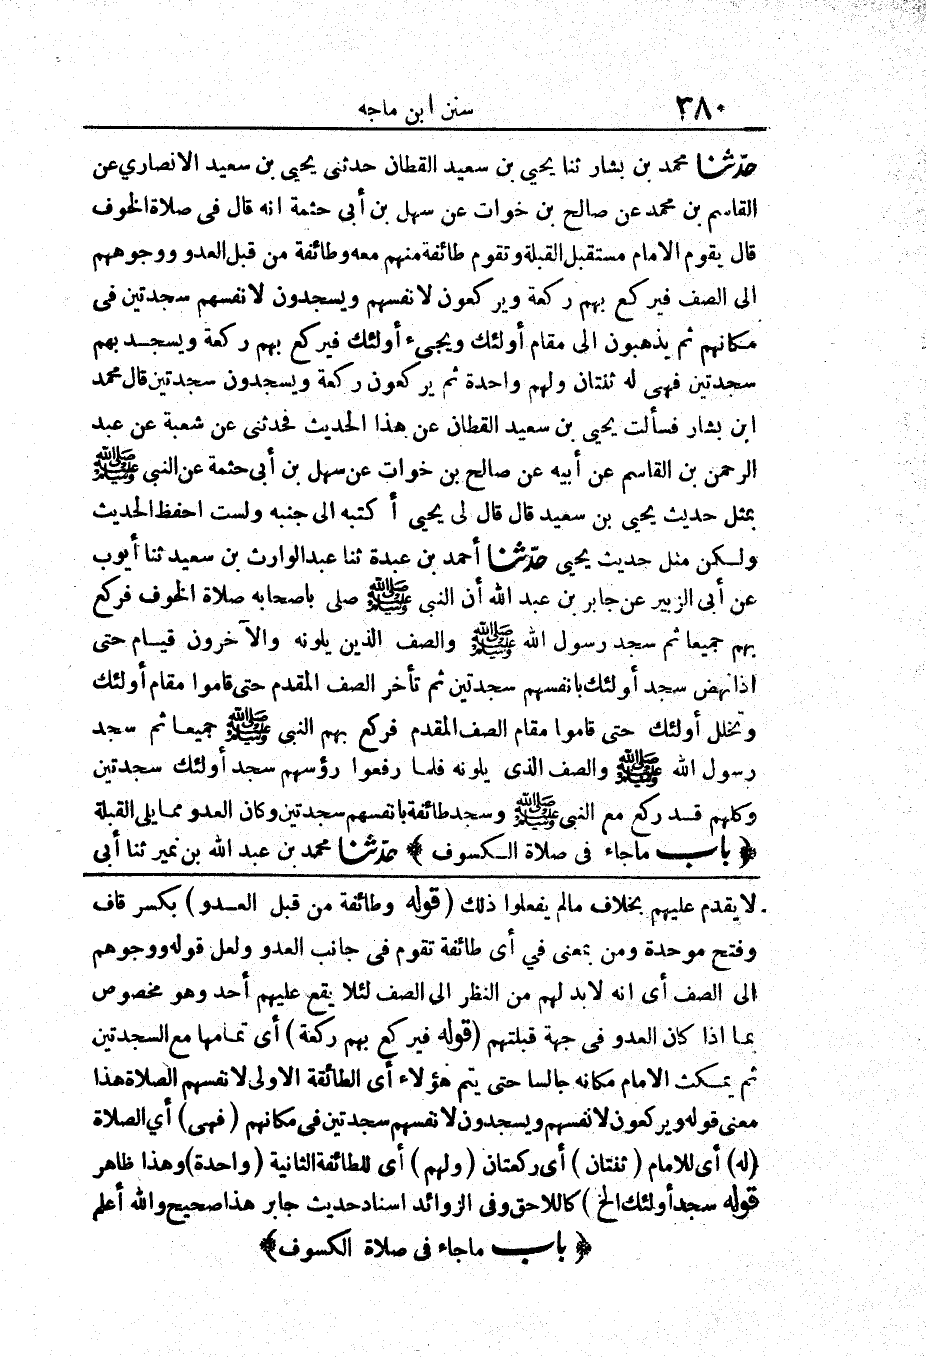 ٣٨٠ سنن ابن ماجه
حدّثنا محمد بن بشار ثنا يحيى بن سعيد القطان حدثنى يحيى بن سعيد الانصاري عن
القاسم بن محمد عن صالح بن خوات عن سهل بن أبي حثمة انه قال فى صلاة الخوف
قال يقوم الامام مستقبل القبلة وتقوم طائفة منهم معه وطائفة من قبل العدو ووجوههم
الى الصف فيركع بهم ركعة ويركعون لانفسهم ويسجدون لانفسهم سجدتين فى
مكانهم ثم يذهبون الى مقام أولئك ويجيء أولئك فيركع بهم ركعة ويسجد بهم
سجدتين فهى له ثنتان ولهم واحدة ثم يركعون ركعة ويسجدون سجدتين قال محمد
ابن بشار فسألت يحيى بن سعيد القطان عن هذا الحديث فحدثنى عن شعبة عن عبد
الرحمن بن القاسم عن أبيه عن صالح بن خوات عن سهل بن أبى حثمة عن النبى ﷺ
بمثل حديث يحيى بن سعيد قال قال لى يحيى أكتبه الى جنبه ولست احفظ الحديث
ولكن مثل حديث يحيى حدّثنا أحمد بن عبدة ثنا عبدالوارث بن سعيد ثنا أيوب
عن أبى الزبير عن جابر بن عبد الله أن النبى ﷺ صلى باصحابه صلاة الخوف فركع
بهم جميعا ثم سجد رسول الله ﷺ والصف الذين يلونه والآخرون قيام حتى
اذا نهض سجد أولئك بانفسهم سجدتين ثم تأخر الصف المقدم حتى قاموا مقام أولئك
وتخلل أولئك حتى قاموا مقام الصف المقدم فركع بهم النبى ﷺ جميعا ثم سجد
رسول الله ﷺ والصف الذى يلونه فلما رفعوا رؤسهم سجد أولئك سجدتين
وكلهم قد ركع مع النبى ﷺ وسجد طائفة بانفسهم سجدتين وكان العدو مما يلى القبلة
﴿ باب ماجاء فى صلاة الكسوف ﴾ حدّثنا محمد بن عبد الله بن نمير ثنا أبى
لا يقدم عليهم بخلاف مالم يفعلوا ذلك (قوله وطائفة من قبل العدو) بكسر قاف
وفتح موحدة ومن بمعنى في أى طائفة تقوم فى جانب العدو ولعل قوله ووجوهم
الى الصف أى انه لابد لهم من النظر الى الصف لئلا يقع عليهم أحد وهو مخصوص
بما اذا كان العدو فى جهة قبلتهم (قوله فيركع بهم ركعة) أى تمامها مع السجدتين
ثم يمكث الامام مكانه جالسا حتى يتم هؤلاء أى الطائفة الاولى لانفسهم الصلاة هذا
معنى قوله ويركعون لانفسهم ويسجدون لانفسهم سجدتين فى مكانهم (فهى) أي الصلاة
(له) أى للامام (ثنتان) أى ركعتان (ولهم) أى للطائفة الثانية (واحدة) وهذا ظاهر
قوله سجد أولئك الخ) كاللاحق وفى الزوائد اسناد حديث جابر هذا صحيح والله أعلم
﴿ باب ماجاء فى صلاة الكسوف ﴾